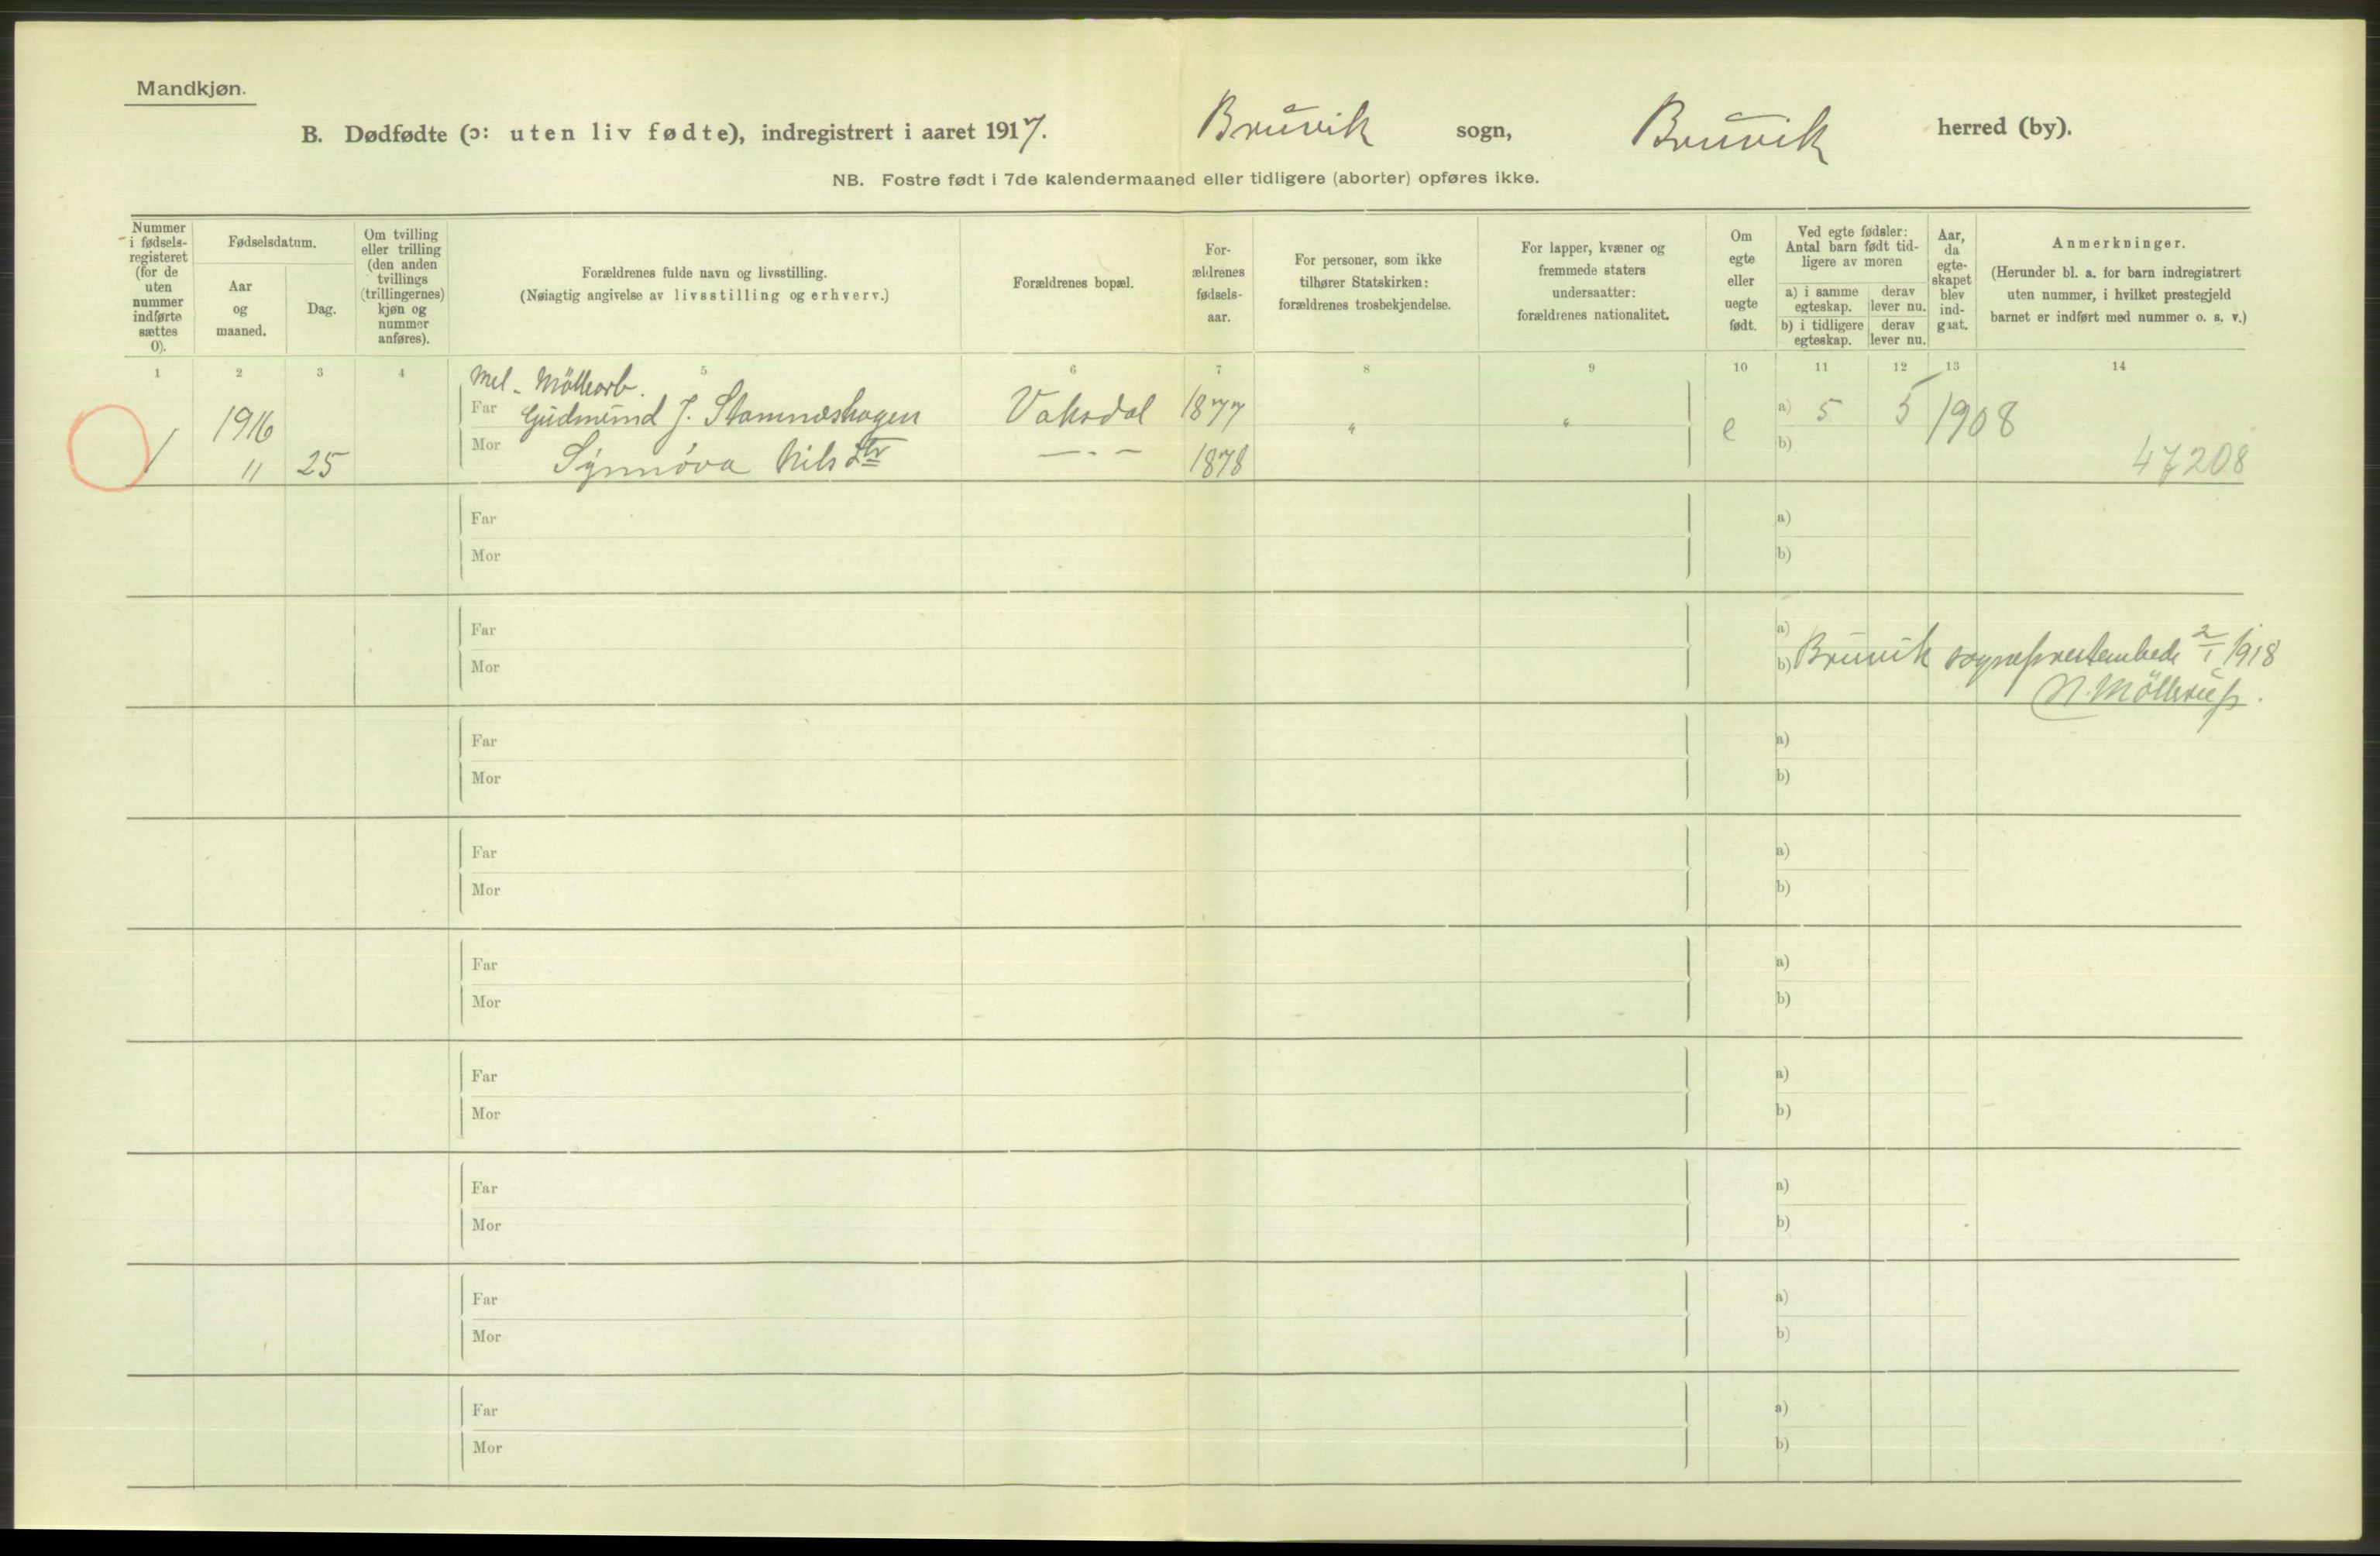 Mandkjøn.
B. Dødfødte (ɔ: uten liv fødte), indregistrert i aaret 1917. Bruvik sogn, Bruvik herred (by).
NB. Fostre født i 7de kalendermaaned eller tidligere (aborter) opføres ikke.
Nummer i fødsels-registeret (for de uten nummer indførte sættes 0).
Fødselsdatum.
Aar og maaned.
Dag.
Om tvilling eller trilling (den anden tvillings (trillingernes) kjøn og nummer anføres).
Forældrenes fulde navn og livsstilling.
(Nøiagtig angivelse av livsstilling og erhverv.)
Forældrenes bopæl.
For-ældrenes fødsels-aar.
For personer, som ikke tilhører Statskirken: forældrenes trosbekjendelse.
For lapper, kvæner og fremmede staters undersaatter: forældrenes nationalitet.
Om egte eller uegte født.
Ved egte fødsler: Antal barn født tid-ligere av moren
a) i samme egteskap. derav lever nu.
b) i tidligere egteskap. derav lever nu.
Aar, da egte-skapet blev ind-gaat.
Anmerkninger.
(Herunder bl. a. for barn indregistrert uten nummer, i hvilket prestegjeld barnet er indført med nummer o. s. v.)
1 2 3 4 5 6 7 8 9 10 11 12 13 14
Mel-Möllearb.
1916 Far Gudmund J. Stamneshagen Vaksdal 1877 " " e a) 5 5 1908
1 11 25 Mor Synnøva Nilsdtr —·— 1878 b) 47208
Far a)
Mor b)
Far a)
Mor b) Bruvik sogneprestembede 2/1 1918
N. Möllerup.
Far a)
Mor b)
Far a)
Mor b)
Far a)
Mor b)
Far a)
Mor b)
Far a)
Mor b)
Far a)
Mor b)
Far a)
Mor b)